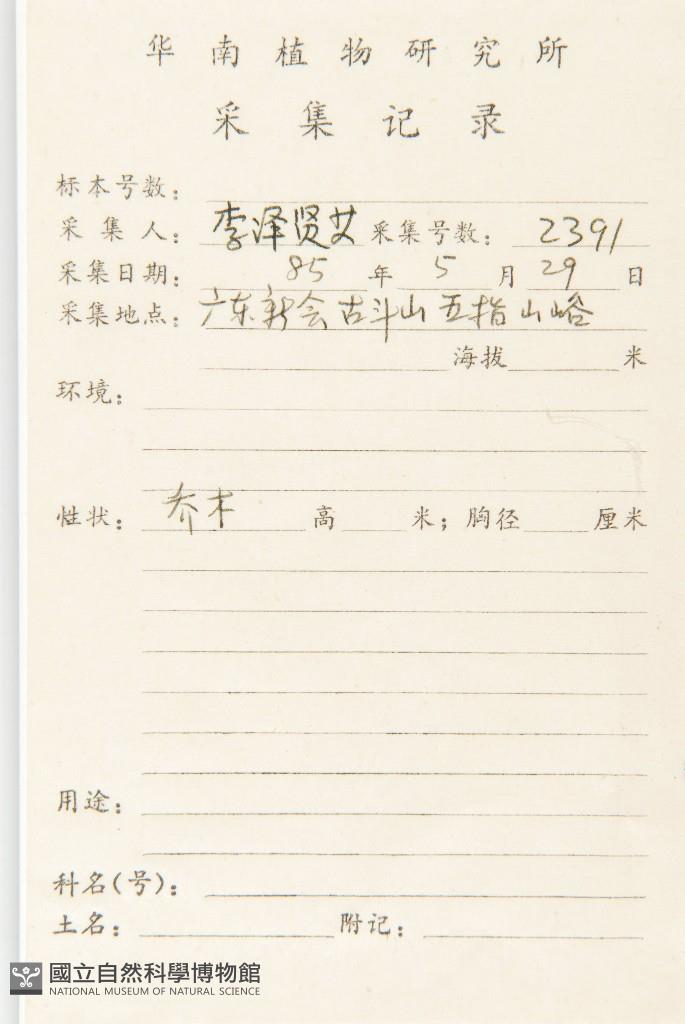 华南植物研究所
采集记录
标本号数：
采集人：李泽贤 采集号数：2391
采集日期：85年5月29日
采集地点：广东新会古斗山五指山峪
海拔 米
环境：
性状：乔木 高 米；胸径 厘米
用途：
科名(号)：
土名： 附记：
國立自然科學博物館
NATIONAL MUSEUM OF NATURAL SCIENCE